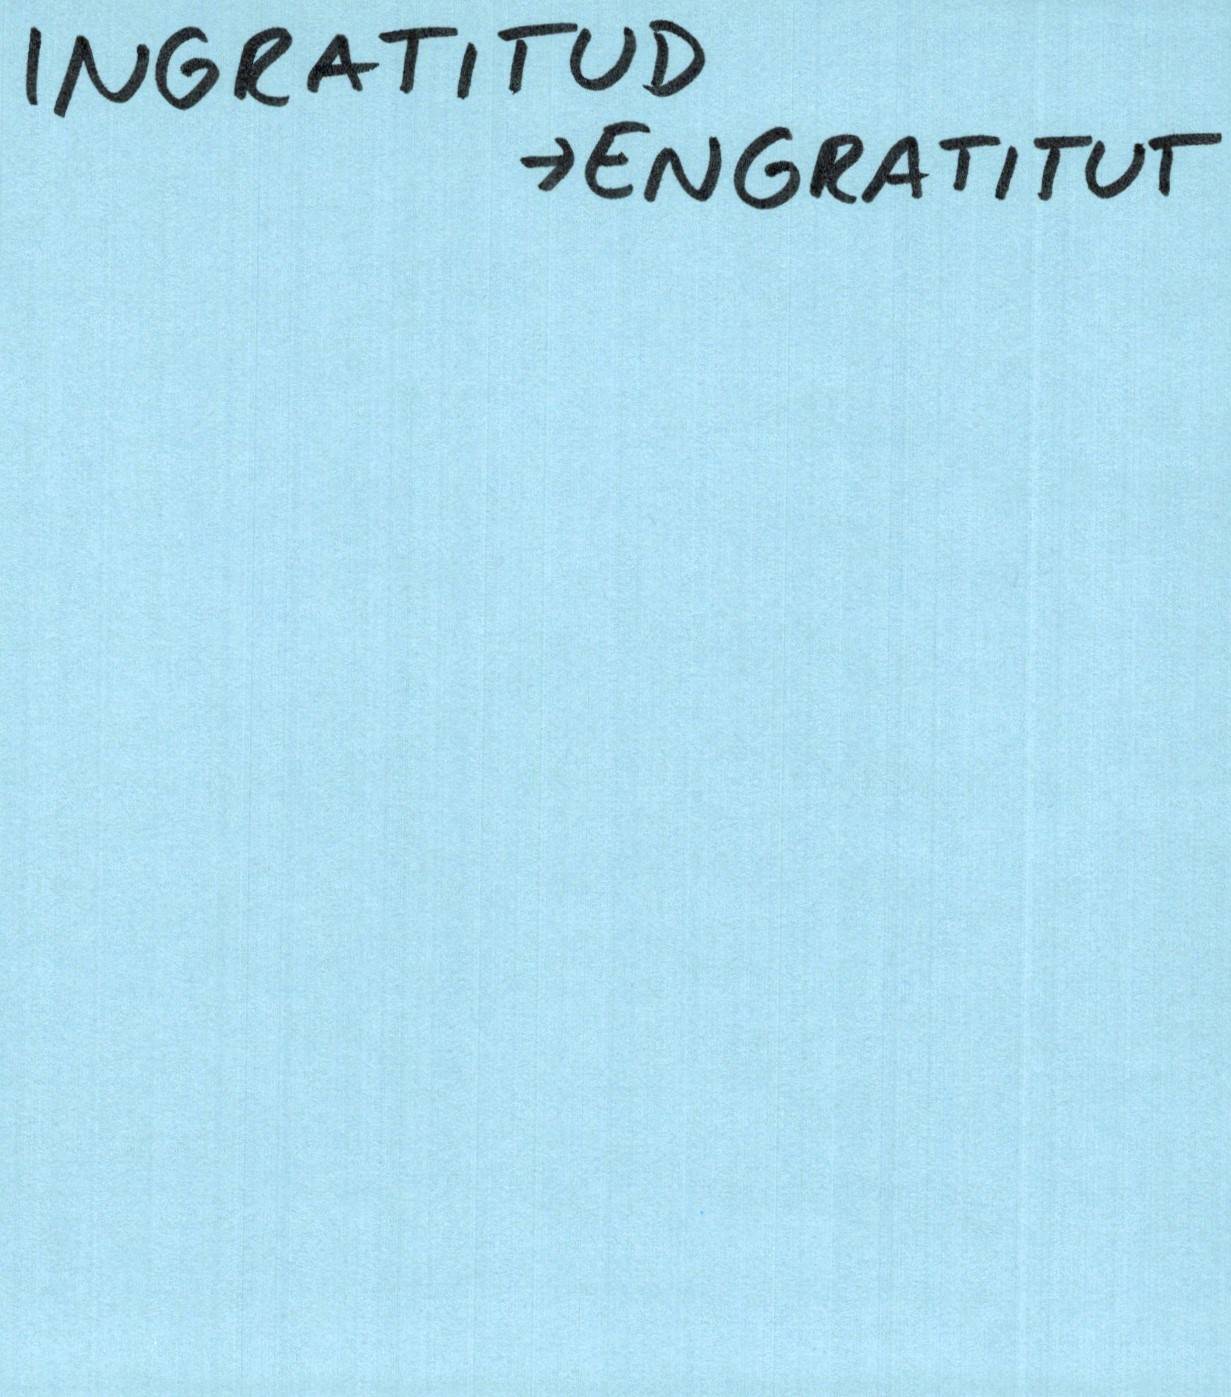 INGRATITUD
→ENGRATITUT